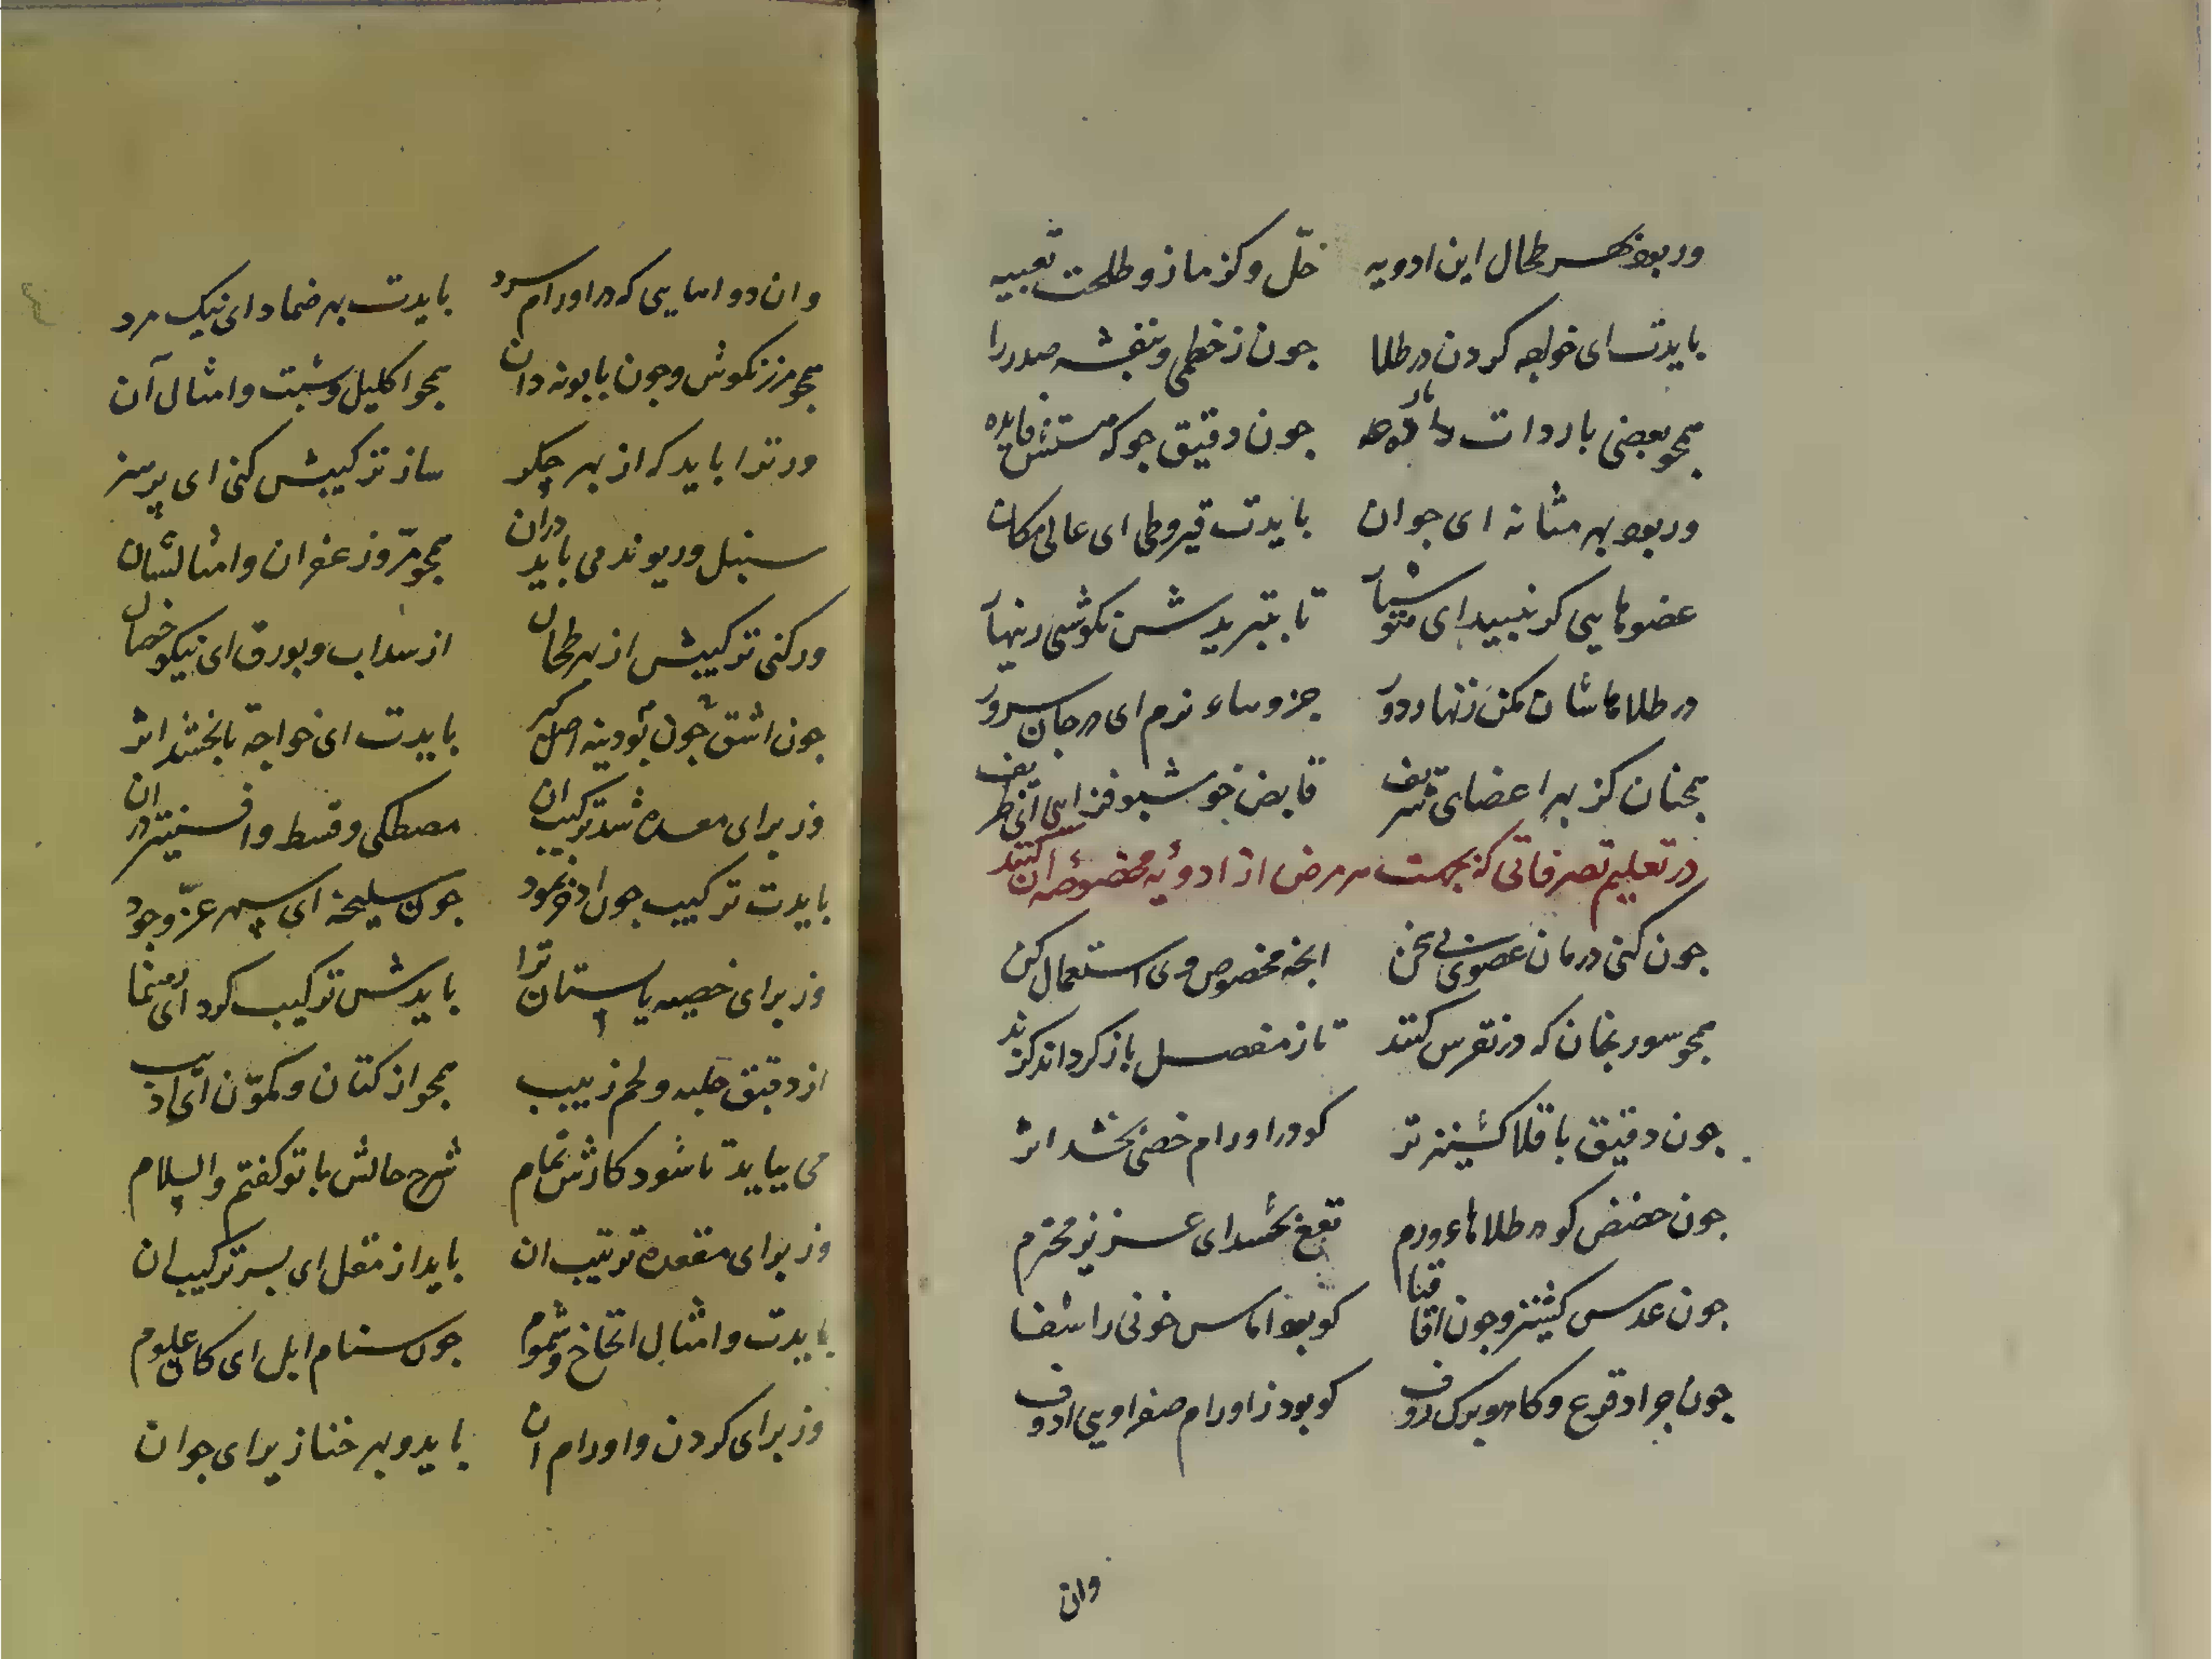 ور بود بهر طحال این ادویه خلّ و کزمازو طلحت تعبیه
بایدت ای خواجه کردن در طلا جون ز خطمی و بنفشه صدر را
همجو بعضی باردات جون دقیق جو که هستش فایده
ور بود بهر مثانه ای جوان بایدت قیروطی ای عالی مکان
عضوهایی کر ببینید ای تا بتبریدش نکوشی زینهار
در طلاهاشان مکن زنهار دور جز وساء نرم ای در جان سرور
همجنان کز بهر اعضای شریف قابض خوشبو فزایی ای ظریف
در تعلیم تصرفاتی که بجهت هر مرض از ادویه مخصوصه ان کنند
جون کنی درمان عضوی بی سخن انجه مخصوص وی استعمال کن
همجو سورنجان که در نقرس کنند تا ز مفصل باز کرداند کزند
جون دقیق باقلا کشنیز تر کو در اورام خصی بخشد اثر
جون حضض کو در طلاهاء ورم نفع بخشد ای عزیز محترم
جون عدس کشنیز و جون اقاقیا کو بود اماس خونی را شفا
جون جراد قرع و کاهو برک کو بود ز اورام صفراویی
وان
وان دواهایی که در اورام سرد بایدت بهر ضماد ای نیک مرد
همجو مرزنکوش و جون بابونه دان همجو اکلیل و شبت و امثال آن
ور ترا باید که از بهر جکر ساز ترکیبش کنی ای پر هنر
سنبل و ریوند می باید دران همجو مرّ و زعفران و امثالشان
ور کنی ترکیبش از بهر طحال از سداب و بورق ای نیکو خصال
جون اشق جون پودینه اصل کبر بایدت ای خواجه تا بخشد اثر
وز برای معده شد ترکیب ان مصطکی و قسط و افسنتین دران
بایدت ترکیب جون اذخر نمود جون سلیخه ای سپهر عزّ و جود
وز برای خصیه یا پستان ترا بایدش ترکیب کرد ای رهنما
از دقیق حلبه و لحم زبیب همجو از کتان و کمّون ای ادیب
می بیاید تا شود کارش تمام شرح حالش با تو کفتم والسلام
وز برای مقعده ترتیب ان باید از مقل ای پسر ترکیب ان
بایدت و امثال انخاخ و شحوم جون سنام ابل ای کان علوم
وز برای کردن و اورام ان باید و بهر خنازیر ای جوان